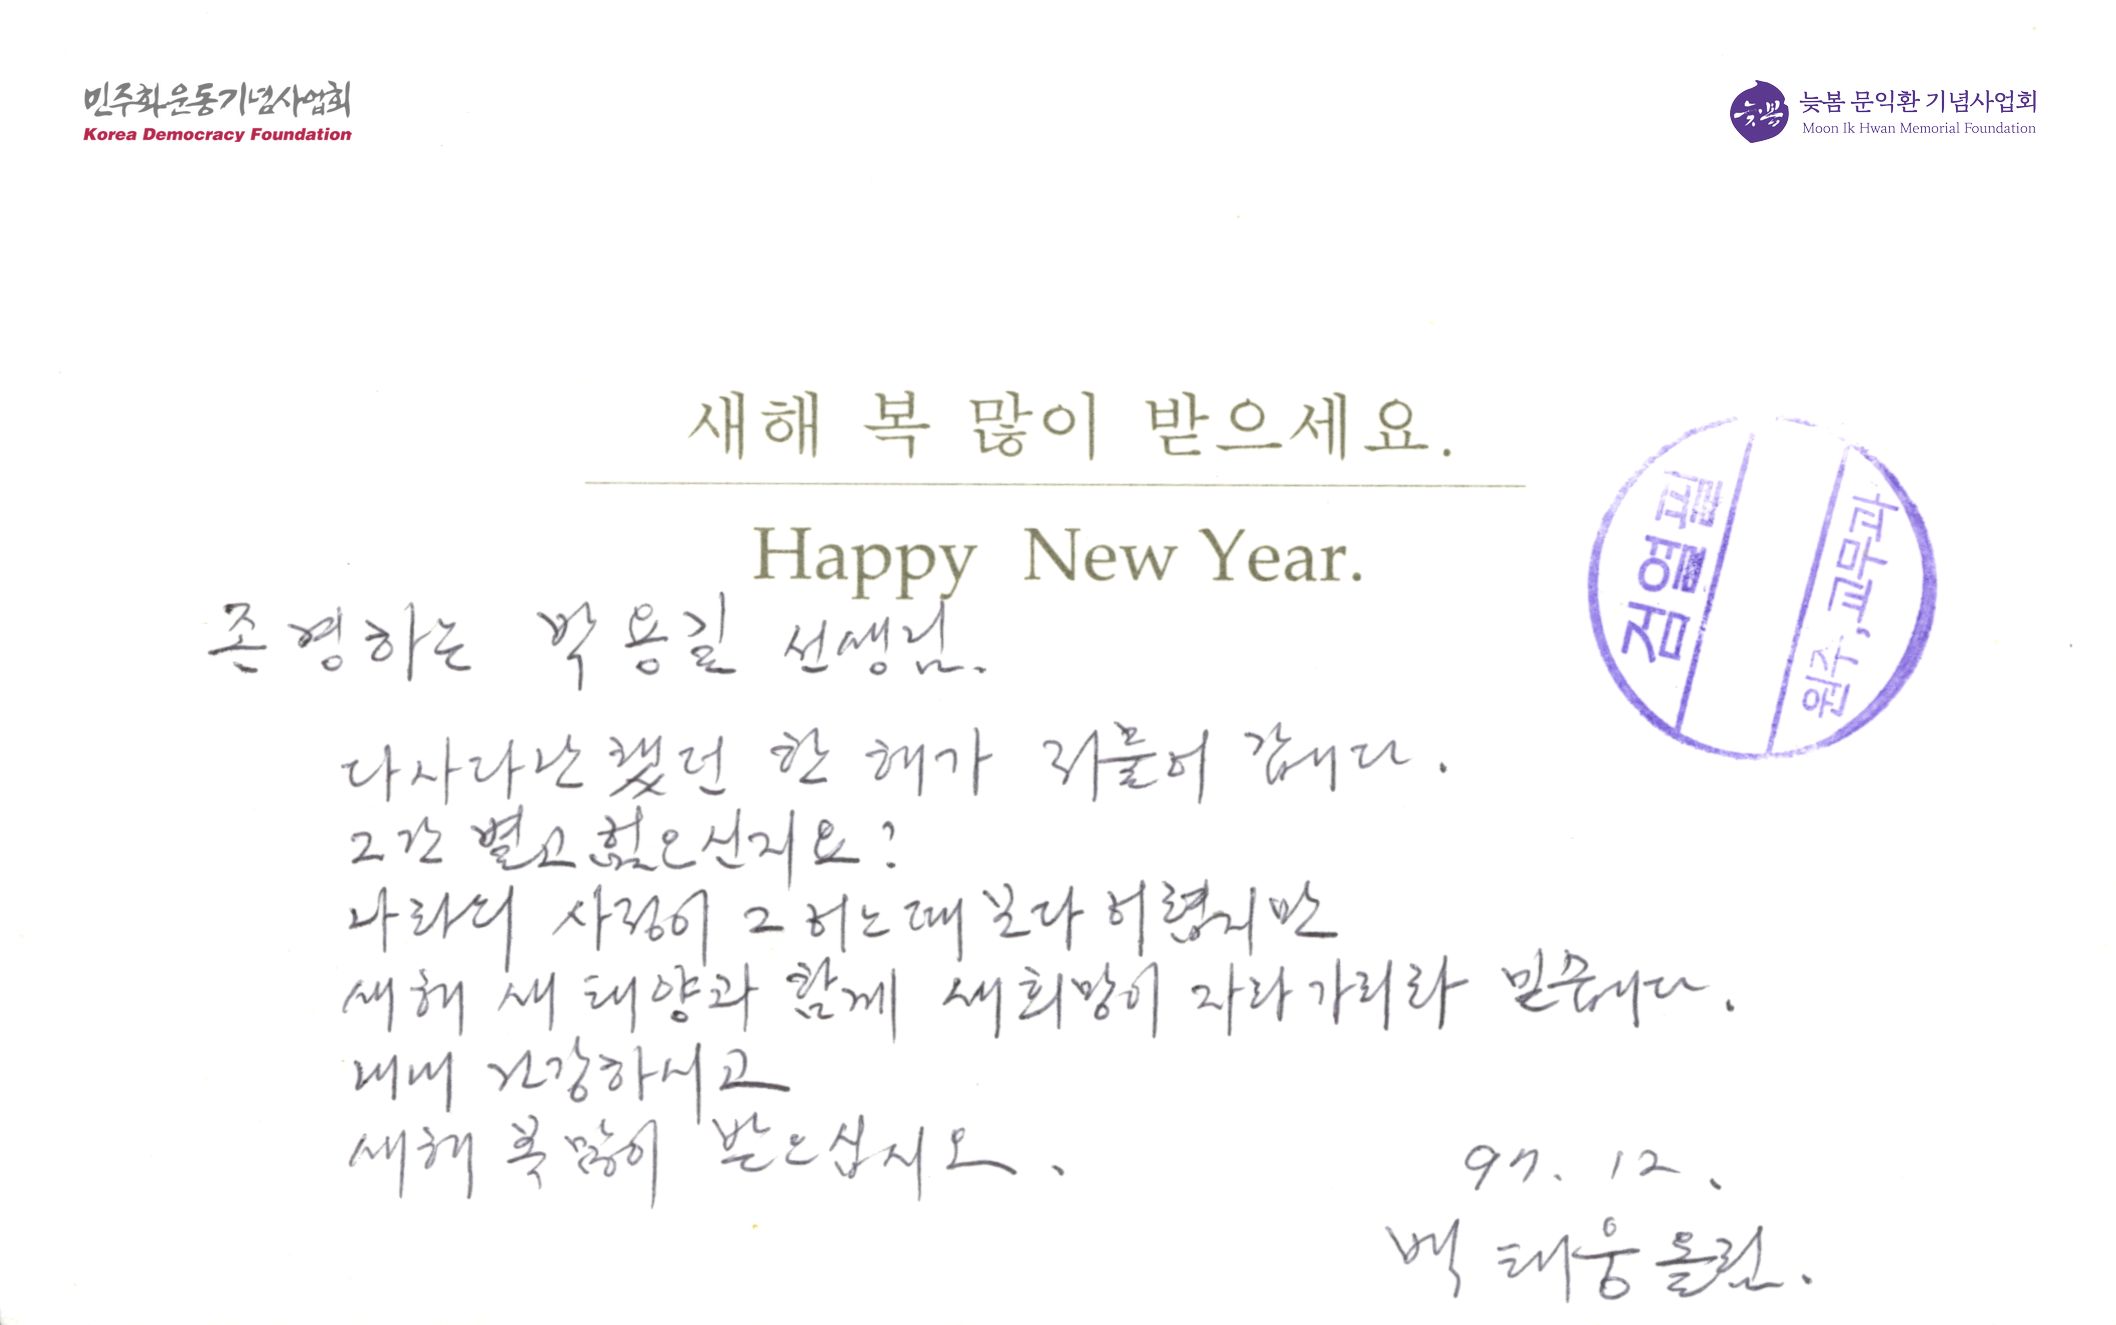 민주화운동기념사업회
Korea Democracy Foundation
늦봄
늦봄 문익환 기념사업회
Moon Ik Hwan Memorial Foundation
새해 복 많이 받으세요.
Happy New Year.
검열필
원주,교무과
존경하는 박용길 선생님.
다사다난했던 한 해가 저물어 갑니다.
그간 별고 없으신지요?
나라의 사정이 그 어느때보다 어렵지만
새해 새 태양과 함께 새희망이 자라가리라 믿습니다.
내내 건강하시고
새해 복많이 받으십시오.
97. 12.
백태웅 올림.